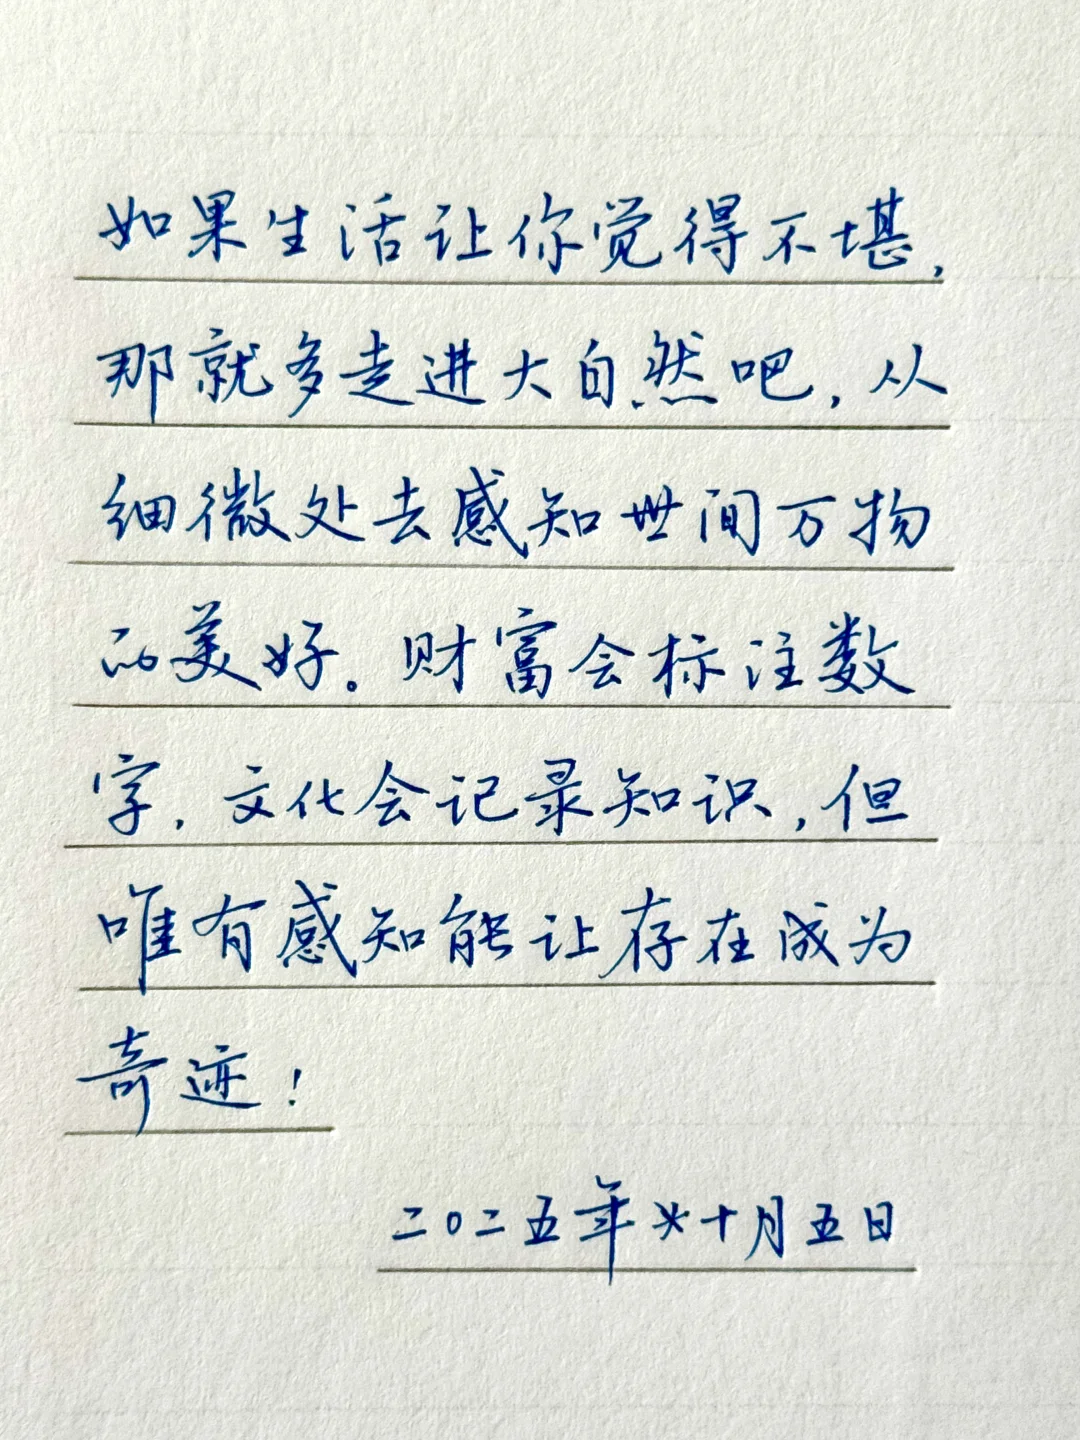 如果生活让你觉得不堪，
那就多走进大自然吧，从
细微处去感知世间万物
的美好。财富会标注数
字，文化会记录知识，但
唯有感知能让存在成为
奇迹！
二〇二五年 十月五日